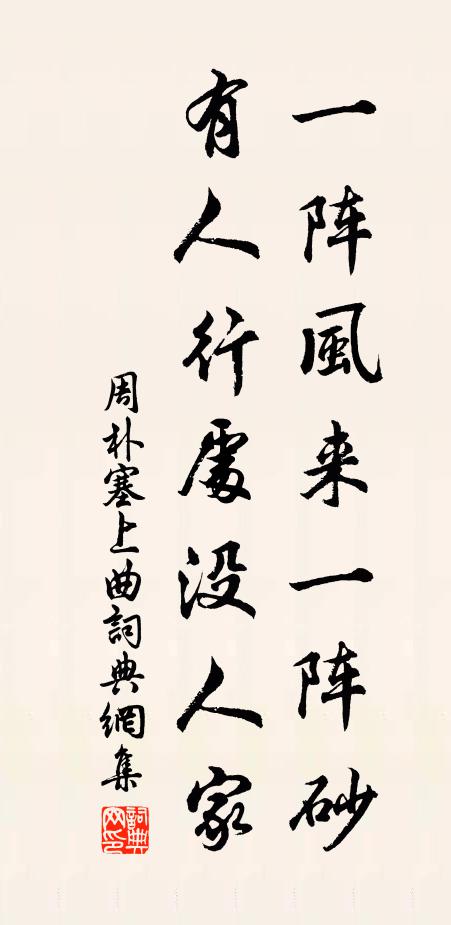 一阵風来一阵砂
有人行處没人家
周朴塞上曲詞典網集
詞典网印